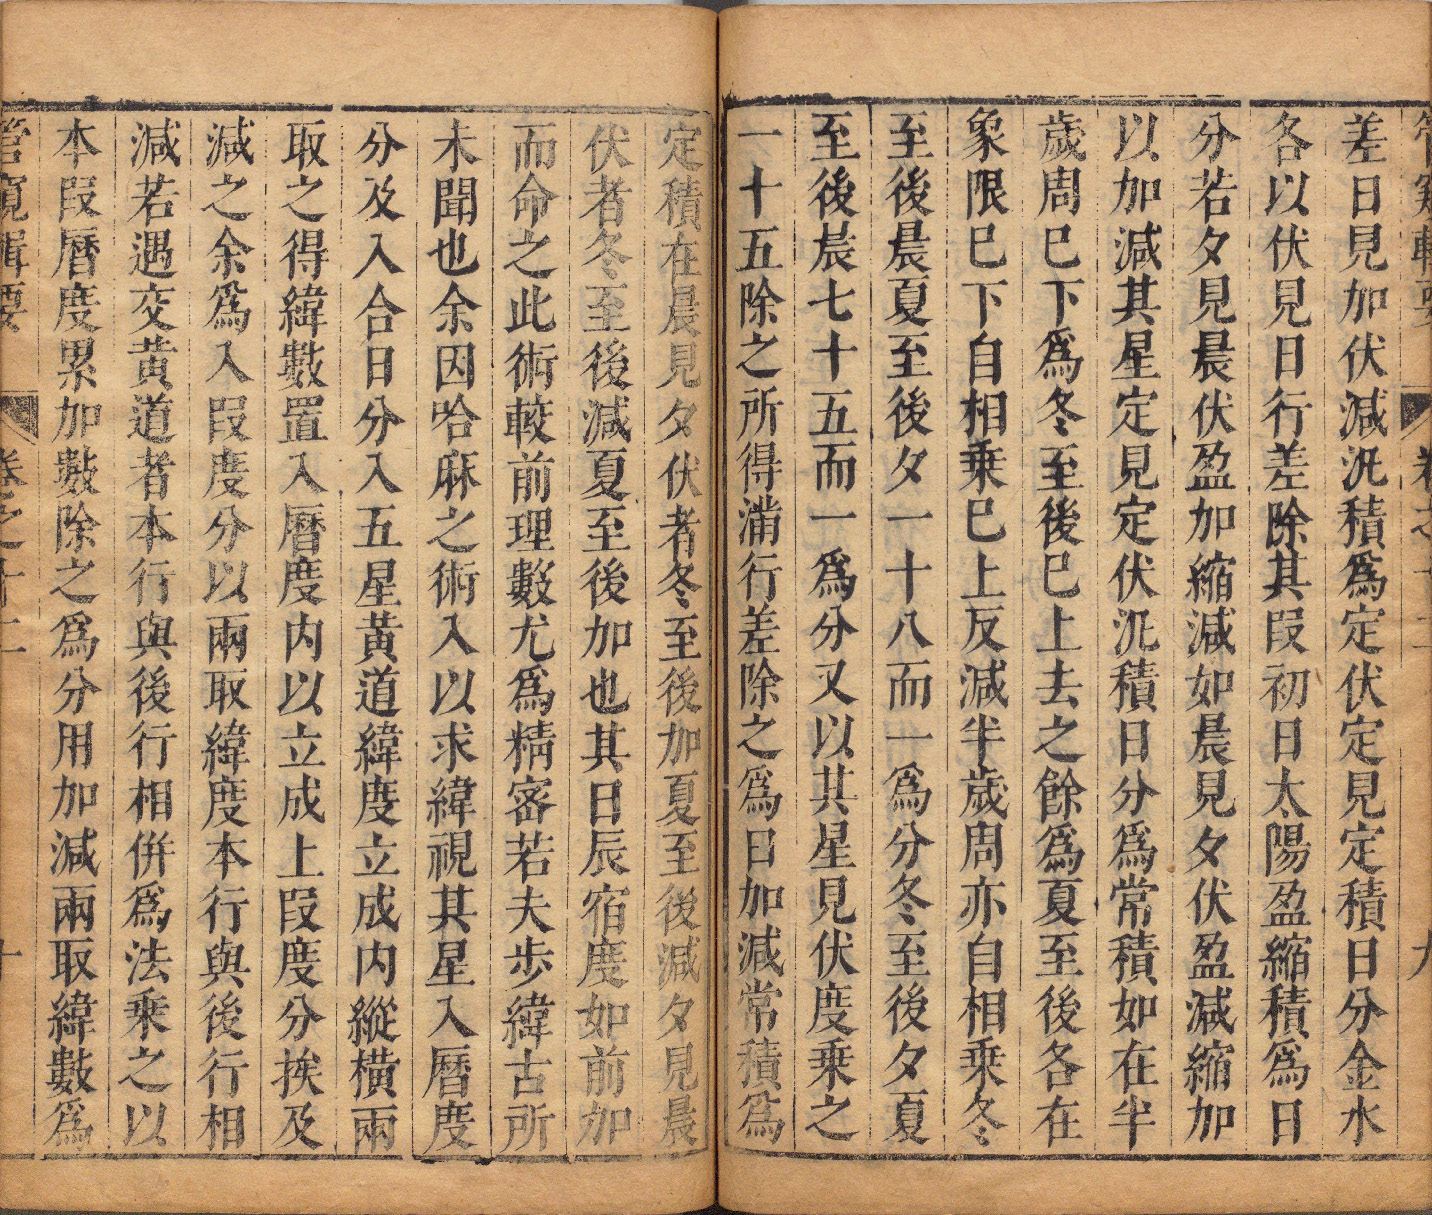 管窺輯要 卷之十二 九
差日見加伏減汎積爲定伏定見定積日分金水
各以伏見日行差除其段初日太陽盈縮積爲日
分若夕見晨伏盈加縮減如晨見夕伏盈減縮加
以加減其星定見定伏汎積日分爲常積如在半
歲周巳下爲冬至後巳上去之餘爲夏至後各在
象限巳下自相乗巳上反減半歲周亦自相乗冬
至後晨夏至後夕一十八而一爲分冬至後夕夏
至後晨七十五而一爲分又以其星見伏度乗之
一十五除之所得滿行差除之爲日加減常積爲
定積在晨見夕伏者冬至後加夏至後減夕見晨
伏者冬至後減夏至後加也其日辰宿度如前加
而命之此術較前理數尤爲精密若夫歩緯古所
未聞也余因哈麻之術入以求緯視其星入曆度
分及入合日分入五星黃道緯度立成内縱橫兩
取之得緯數置入曆度内以立成上段度分挨及
減之余爲入段度分以兩取緯度本行與後行相
減若遇交黄道者本行與後行相併爲法乗之以
本段曆度累加數除之爲分用加減兩取緯數爲
管窺輯要 卷之十二 十